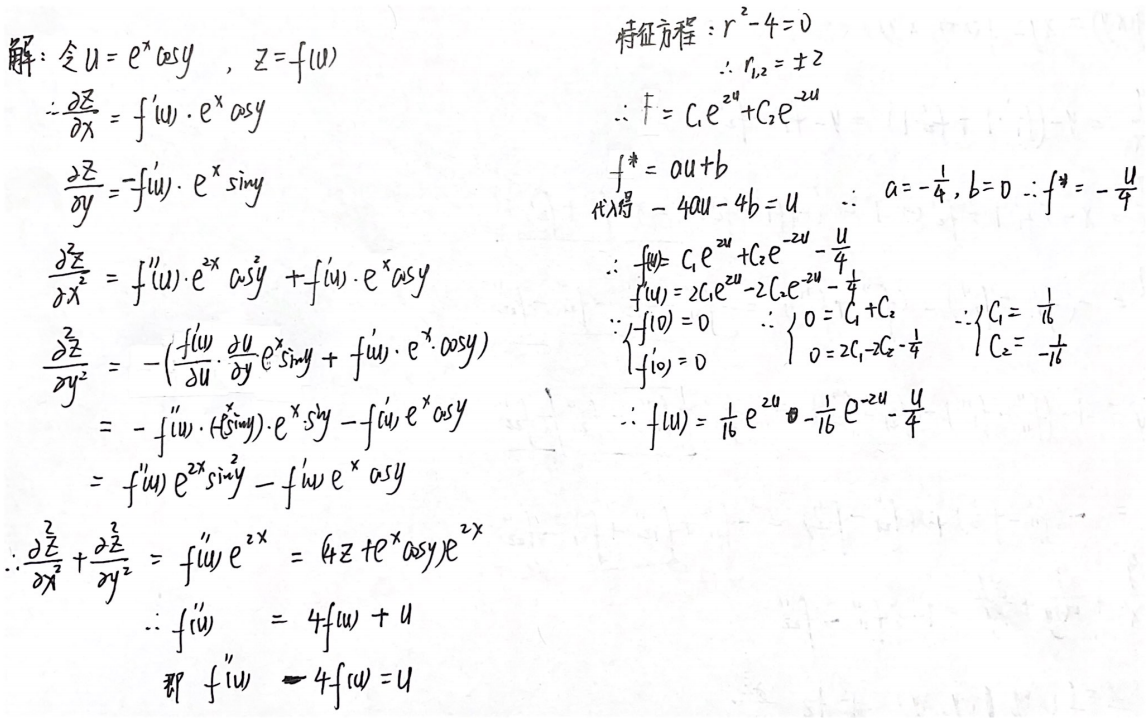 解：令 u = e^x cosy ， z = f(u)
∴ ∂z/∂x = f'(u) · e^x cosy
∂z/∂y = -f'(u) · e^x siny
∂²z/∂x² = f''(u) · e^{2x} cos²y + f'(u) · e^x cosy
∂²z/∂y² = -(f'(u)/∂u · ∂u/∂y e^x siny + f'(u) · e^x · cosy)
= - f''(u) · (-e^x siny) · e^x · siny - f'(u) e^x cosy
= f''(u) e^{2x} sin²y - f'(u) e^x cosy
∴ ∂²z/∂x² + ∂²z/∂y² = f''(u) e^{2x} = (4z + e^x cosy) e^{2x}
∴ f''(u) = 4f(u) + u
即 f''(u) - 4f(u) = u
特征方程：r² - 4 = 0
∴ r_{1,2} = ±2
∴ F = C₁e^{2u} + C₂e^{-2u}
f* = au + b
代入得 - 4au - 4b = u ∴ a = -1/4, b = 0 ∴ f* = - u/4
∴ f(u) = C₁e^{2u} + C₂e^{-2u} - u/4
f'(u) = 2C₁e^{2u} - 2C₂e^{-2u} - 1/4
∵ { f(0) = 0 ∴ { 0 = C₁ + C₂ ∴ { C₁ = 1/16
f'(0) = 0 0 = 2C₁ - 2C₂ - 1/4 C₂ = 1/-16
∴ f(u) = 1/16 e^{2u} - 1/16 e^{-2u} - u/4